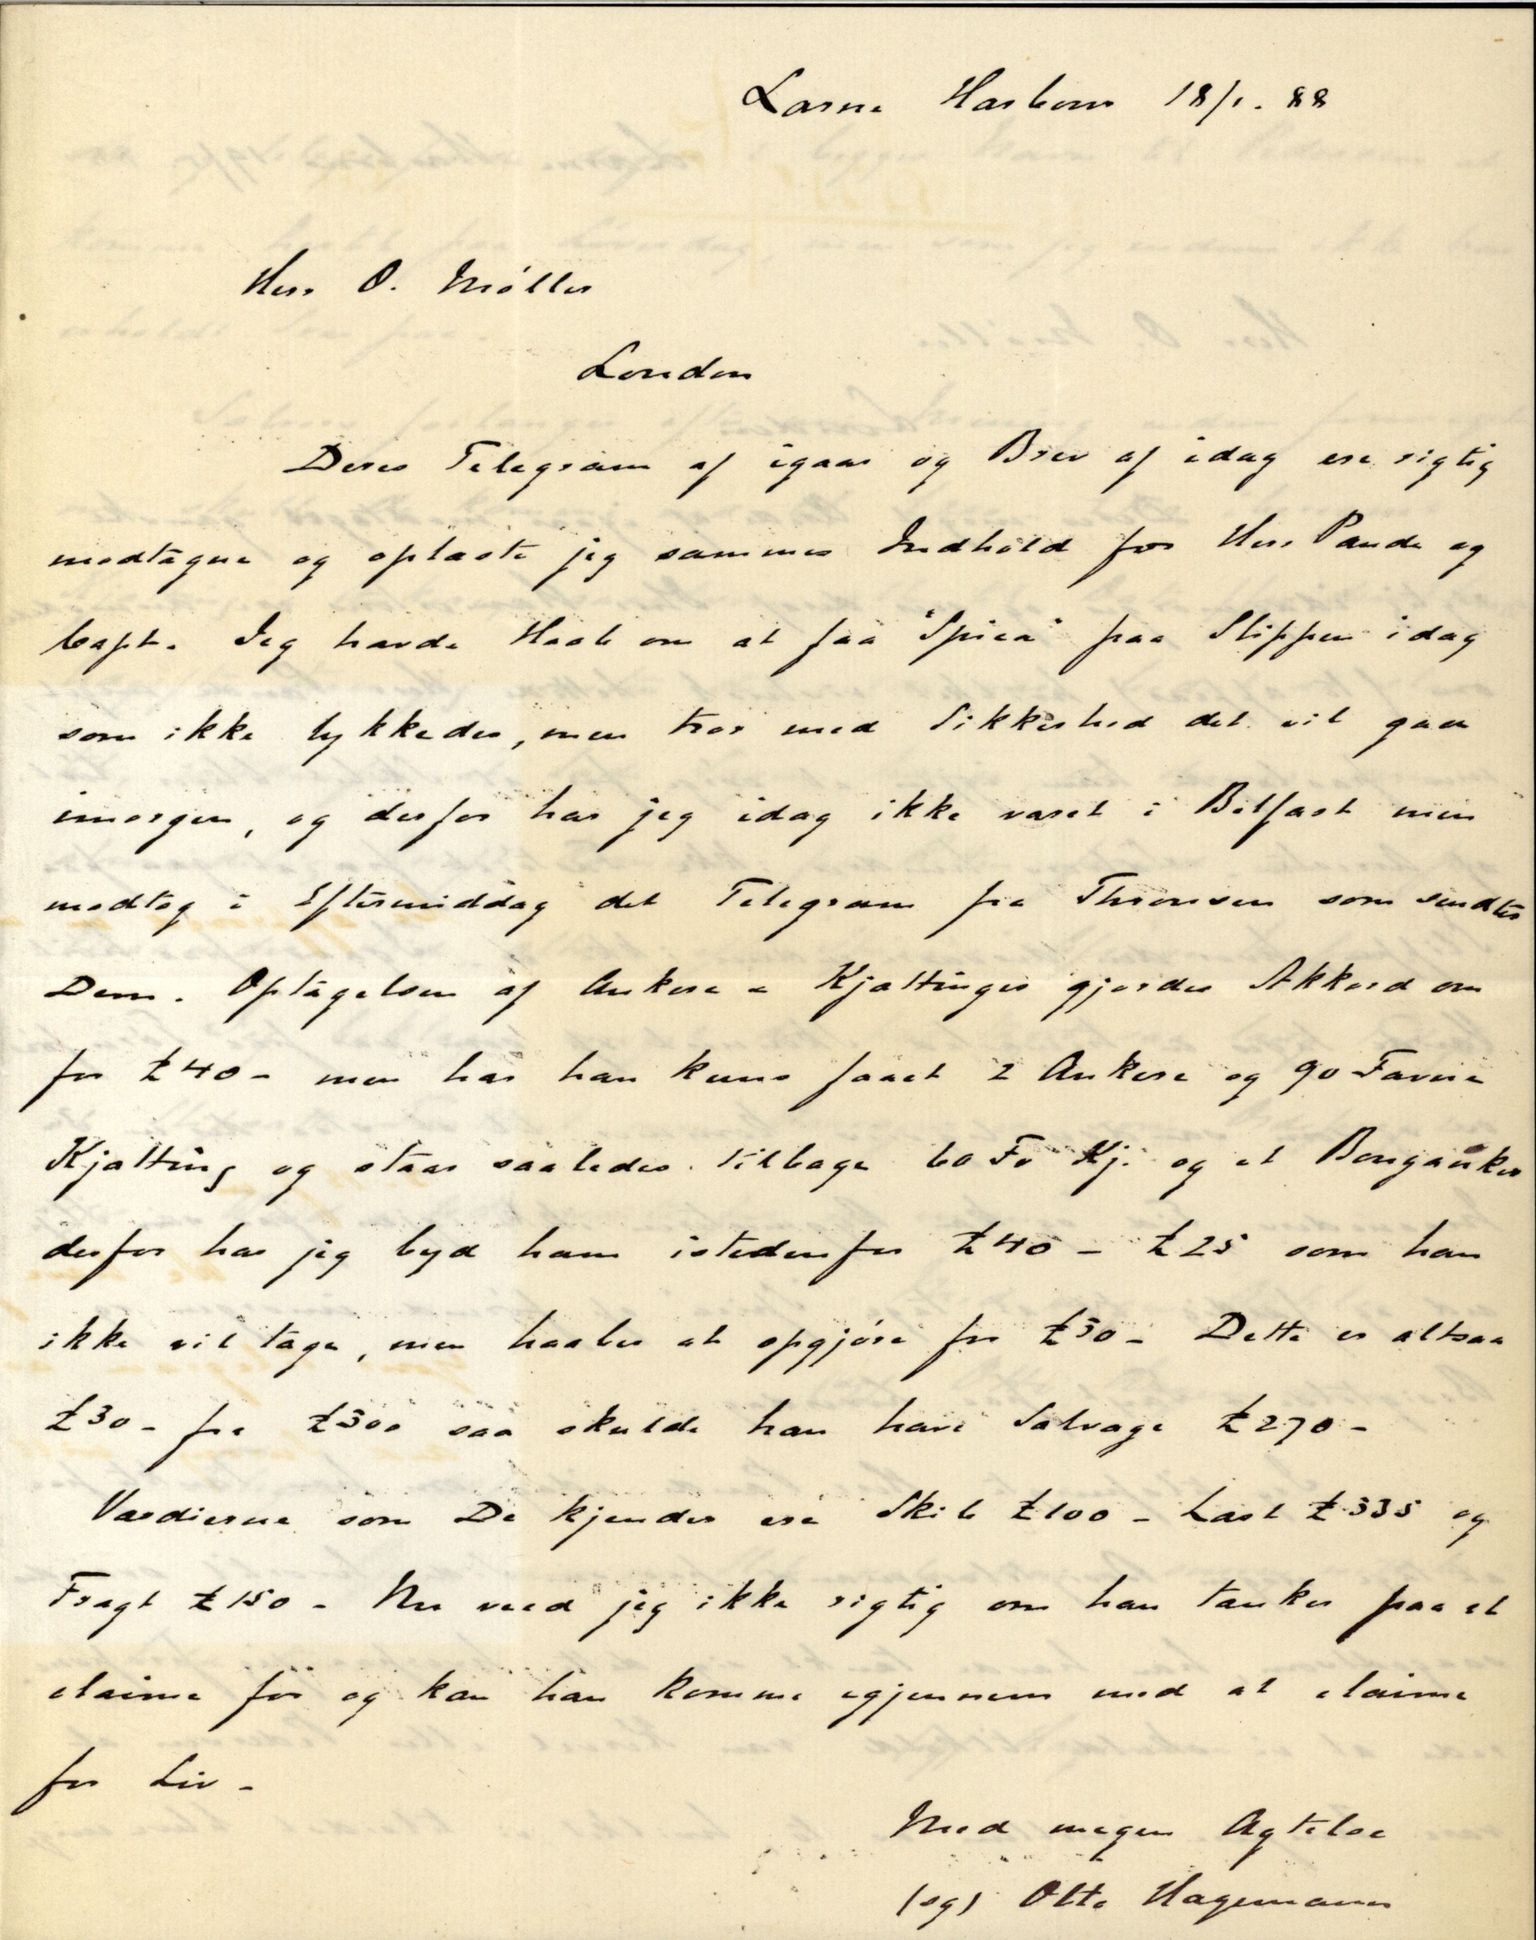 Larne Harbour 18/1. 88
Herr O. Møller
London
Deres Telegram af igaar og Brev af idag ere rigtig
modtagne og oplæste jeg sammes Indhold for Herr Paude og
Capt. Jeg havde Haab om at faa "Spica" paa Slippen idag
som ikke lykkedes, men tror med Sikkerhed det vil gaa
imorgen, og derfor har jeg idag ikke været i Belfast men
modtog i Eftermiddag det Telegram fra Thronsen som sendtes
Dem. Optagelsen af Ankere & Kjættinger gjordes Akkord om
for £40 - men har han kuns faaet 2 Ankere og 90 Favne
Kjætting og staar saaledes tilbage 60 Fv Kj. og et Bouganker
derfor har jeg byd ham istedenfor £40 - £25 som han
ikke vil tage, men haaber at opgjøre for £30 - Dette er altsaa
£30 - fra £300 saa skulde han have Salvage £270 -
Værdierne som De kjender ere Skib £100 - Last £335 og
Fragt £150 - Nu veed jeg ikke rigtig om han tænker paa at
claime for og kan han komme igjennem med at claime
for Liv -
Med megen Agtelse
(sg) Otto Hagemann